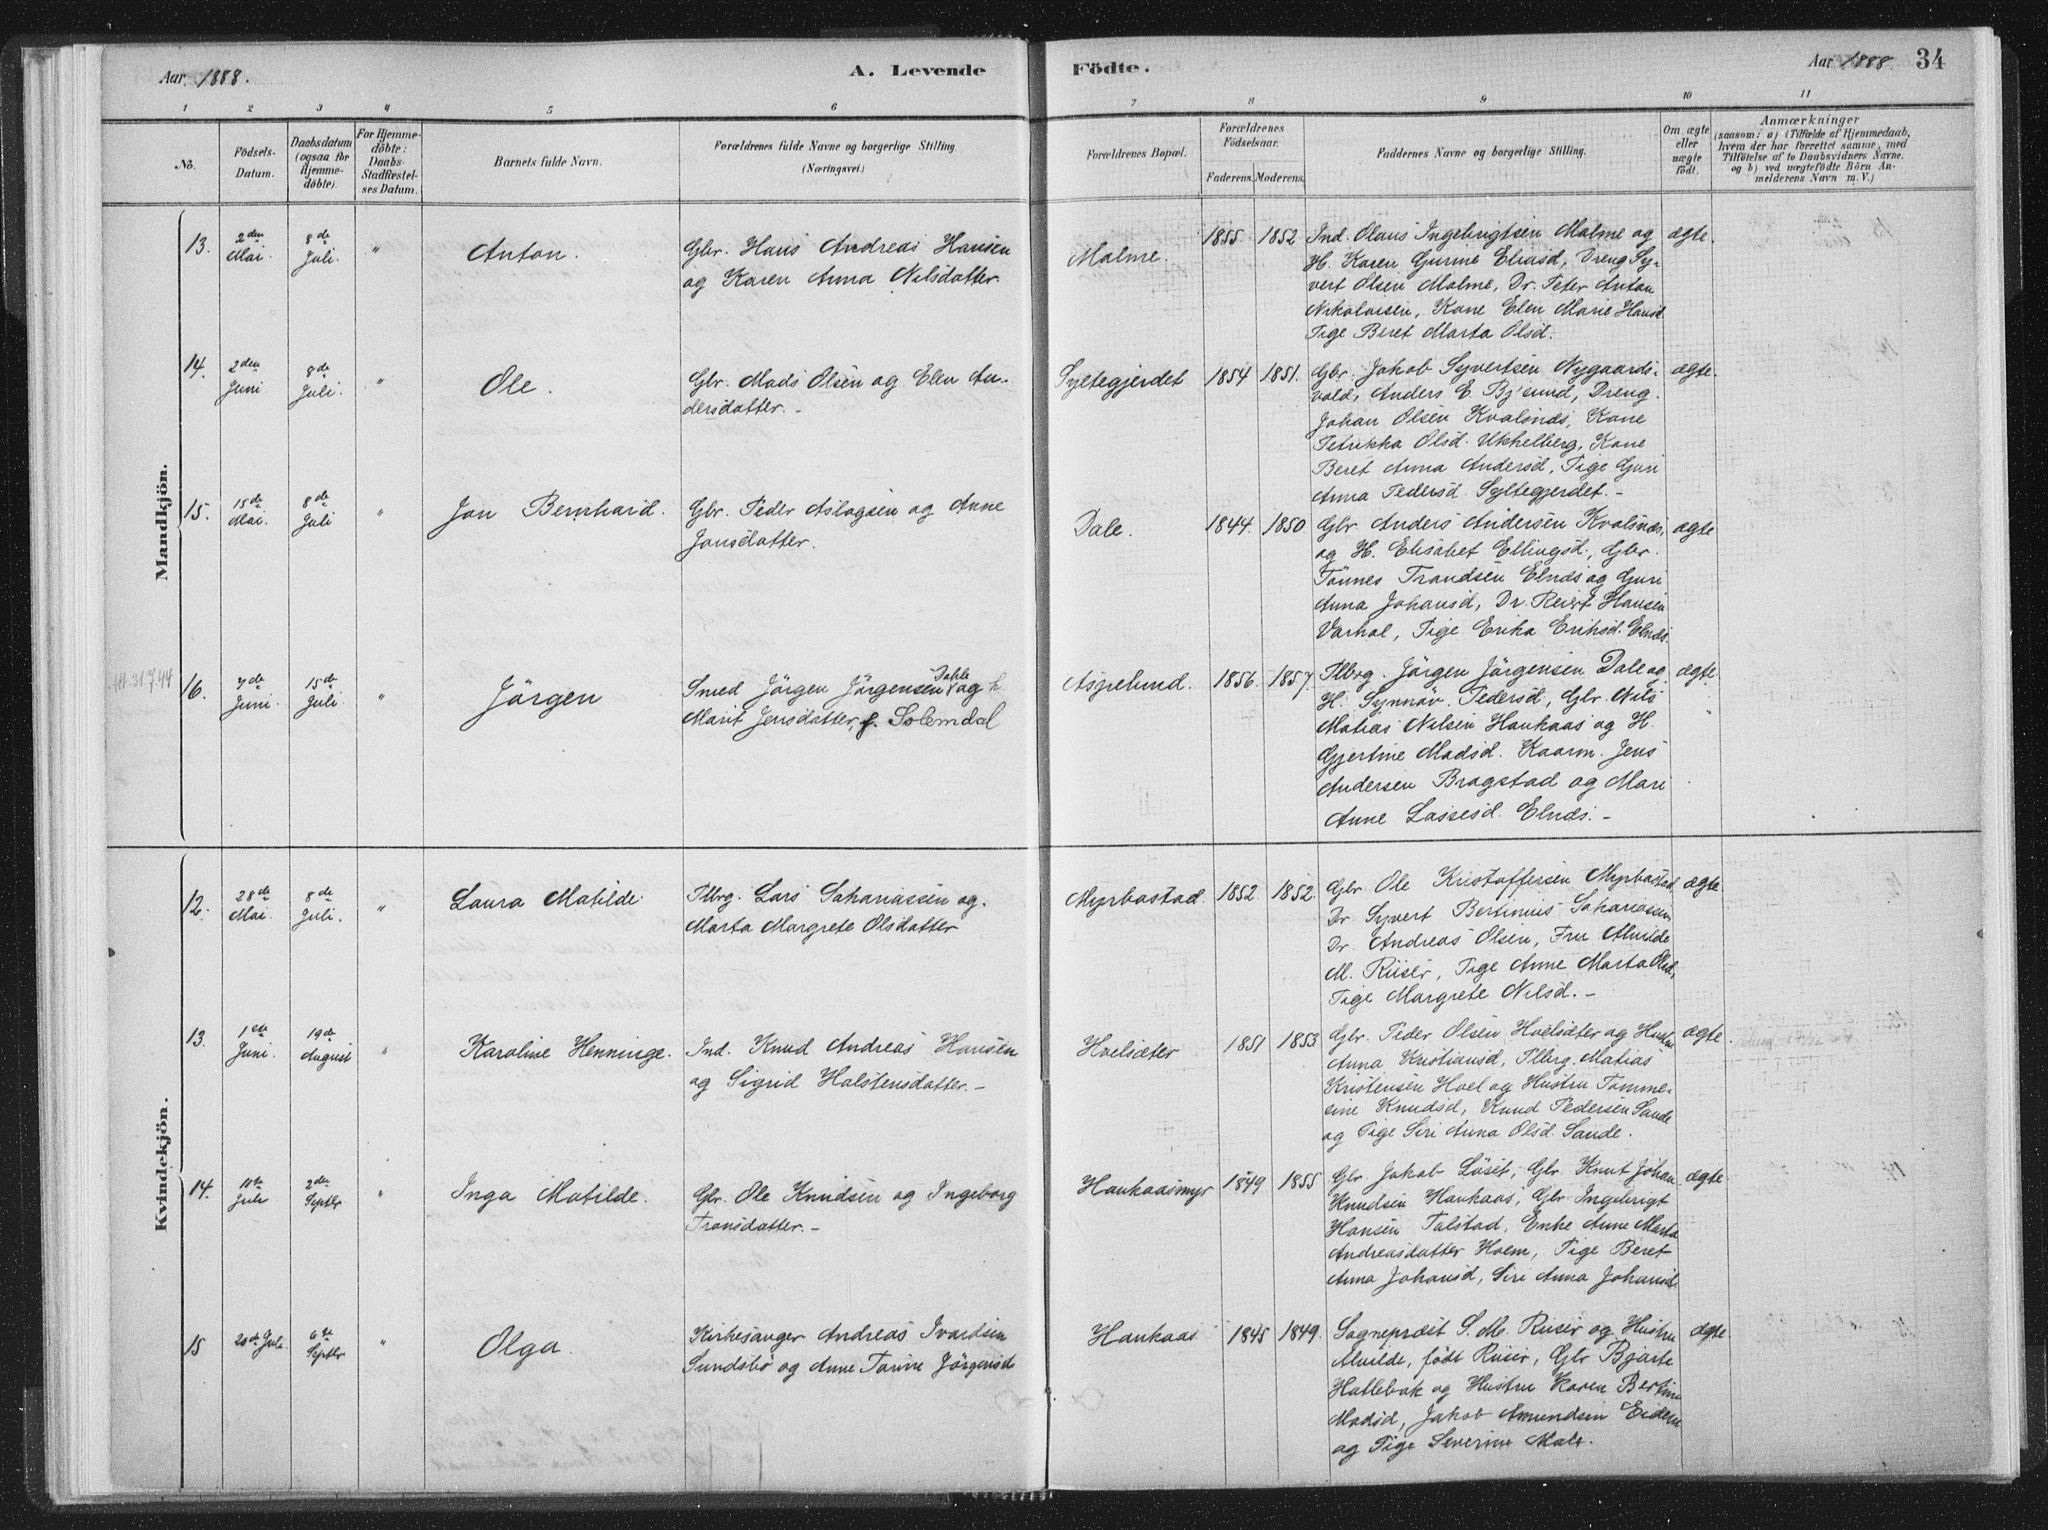 Aar 1888.
A. Levende
Födte.
Aar 1888. 34
1 2 3 4 5 6 7 8 9 10 11
No.
Födsels-
Datum.
Daabsdatum
(ogsaa for
Hjemme-
döbte).
For Hjemme-
döbte:
Daabs-
Stadfæstel-
ses Datum.
Barnets fulde Navn.
Forældrenes fulde Navne og borgerlige Stilling
(Næringsvei.)
Forældrenes Bopæl.
Forældrenes
Födselsaar.
Faderens. Moderens.
Faddernes Navne og borgerlige Stilling.
Om ægte
eller
uægte
födt.
Anmærkninger
(saasom: a) i Tilfælde af Hjemmedaab,
hvem der har forrettet samme, med
Tilföielse af to Daabsvidners Navne.
og b) ved uægtefödte Börn An-
melderens Navn m. V.)
Mandkjön.
13. 2den Mai. 8de Juli. " Anton.
Gbr. Hans Andreas Hansen
og Karen Anna Nilsdatter.
Malme. 1855. 1852
Ind. Olaus Ingebrigtsen Malme og
H. Karen Gurine Eliasd, Dreng Sy-
vert Olsen Malme, Dr. Peter Anton
Nikolaisen, Kone Elen Marie Hansd
Pige Beret Marta Olsd.
ægte.
14. 2den Juni. 8de Juli. " Ole.
Gbr. Mads Olsen og Ellen An-
dersdatter. -
Syltegjerdet 1854 1851.
Gbr. Jakob Syvertsen Nygaards-
vold, Anders E. Byesund, Dreng
Johan Olsen Kvalsnes, Kone
Petrikka Olsd. Ukkelberg, Kone
Beret Anna Andersd, Pige Guri
Anna Pedersd. Syltegjerdet. -
ægte.
15. 15de Mai. 8de Juli " Jon Bernhard.
Gbr. Peder Aslagsen og Anne
Jonsdatter.
Dale. 1844. 1850.
Gbr Anders Andersen Kvalsnes,
og H. Elisabet Ellingsd, Gbr.
Tönnes Trandsen Elnes og Guri
Anna Johansd, Dr. Hansen
Varhol, Pige Erika Eriksd. Elnes.
ægte
HA.31.7.44
16. 7de Juni. 15de Juli " Jörgen
Smed Jörgen Jörgensen Dahle og h
Marit Jensdatter, f. Solemdal
Aspelund. 1856. 1857.
Plbrg. Jörgen Jörgensen Dale og
H. Synnöv Pedersd, Gbr. Nils
Matias Nilsen Haukaas og H.
Gjertine Madsd. Kaarm. Jens
Andersen Bragstad og Mari
Anne Lassesd. Elnes. -
ægte.
Kvindekjön.
12. 28de Mai. 8de Juli. " Laura Matilde.
Plbrg. Lars Sakariassen og
Marta Margrete Olsdatter
Myrbostad. 1852. 1852.
Gbr Ole Kristoffersen Myrbostad
Dr Syvert Bertinius Sakariassen
Dr. Andreas Olsen, Fru Alvilde
M. Riiser, Pige Anne Marta Olsd,
Pige Margrete Nilsd. -
ægte.
13. 1ste Juni. 19de August " Karoline Henninge.
Ind. Knud Andreas Hansen
og Sigrid Halstensdatter. -
Hoelsæter 1851 1853
Gbr. Peder Olsen Hoelsæter og Hustru
Anna Kristiansd, Plbrg. Matias
Kristensen Hoel og Hustru Tomme-
sine Knudsd, Knud Pedersen Sande
og Pige Siri Anna Olsd. Sande.
ægte.
14. 10de Juli 2den Septbr " Inga Matilde.
Gbr. Ole Knudsen og Ingeborg
Transdatter. -
Haukaasmyr 1849 1855
Gbr Jakob Löset, Gbr. Knut Johan
Knudsen Haukaas, Gbr Ingebrigt
Hansen Talstad, Enke Anne Marta
Andreasdatter Hoem, Pige Beret
Anna Johansd, Siri Anna Johansd
ægte
15 20de Juli 6te Septbr " Olga.
Kirkesanger Andreas Ivardsen
Sundsbö og Anne Tarine Jörgensd
Haukaas 1845 1849.
Sogneprest S. M. Riiser og Hustru
Alvilde, födt Riiser, Gbr Bjarte
Hattebak og Hustru Karen Bertine
Madsd, Jakob Amundsen Eidem
og Pige Severine Male.
ægte